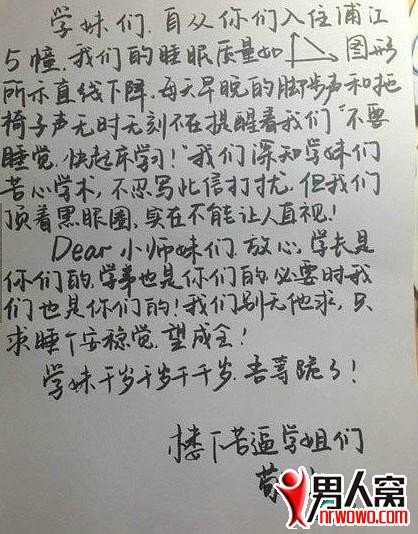 学妹们,自从你们入住浦江
5幢,我们的睡眠质量如 图形
所示直线下降,每天早晚的脚步声和拖
椅子声无时无刻不在提醒着我们“不要
睡觉,快起床学习!”我们深知学妹们
苦心学术,不忍写此信打扰,但我们
顶着黑眼圈,实在不能让人直视!
Dear 小师妹们,放心,学长是
你们的,学弟也是你们的,必要时我
们也是你们的!我们别无他求,只
求睡个安稳觉,望成全!
学妹千岁千岁千千岁,吾等跪了!
楼下苦逼学姐们
男人窝
nrwowo.com